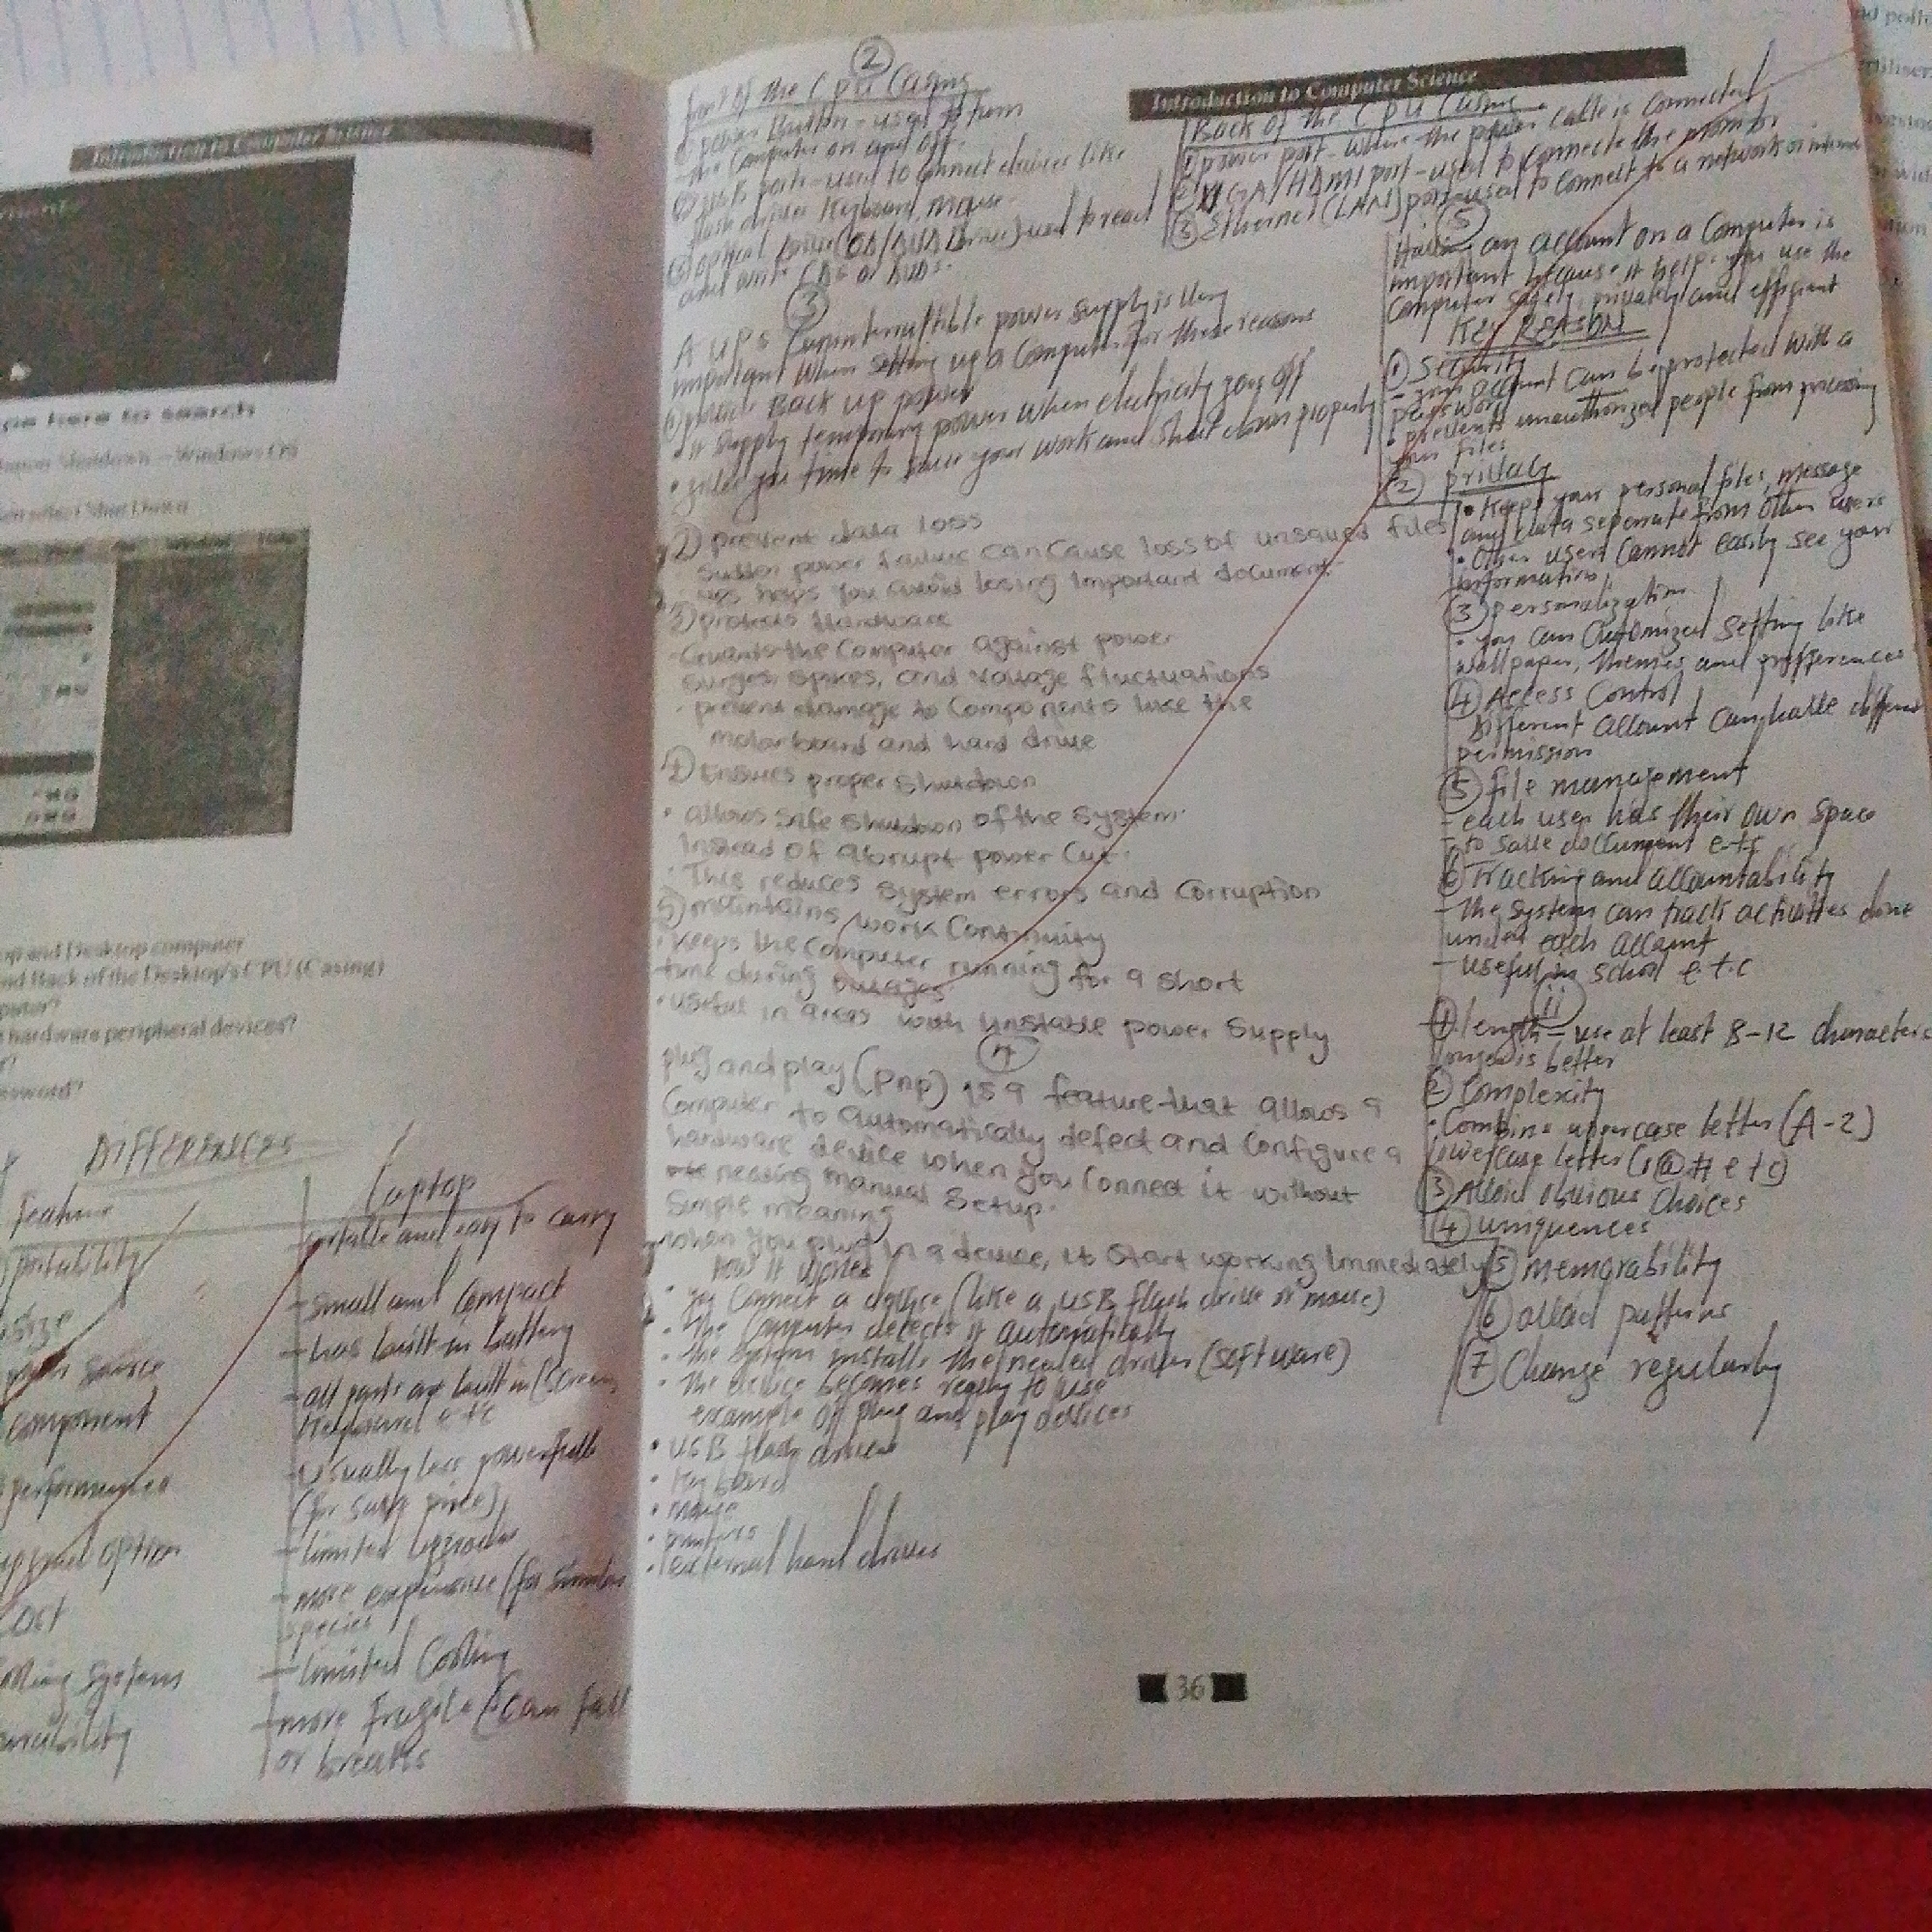 Introduction to Computer Science
to search
Shutdown - Windows OS
Shut Down
and Desktop computer
Back of the Desktop's CPU (Casing)
hardware peripheral devices?
DIFFERENCES
Feature
Laptop
portability
portable and easy to carry
size
- small and compact
- has built in battery
component
- all parts are built in (screen,
e t c
performance
- Usually less powerfull
(for same price)
option
- limited
Cost
- more expensive (for similar
species)
System
- limited Cooling
- more fragile (can fall
or breaks
②
of the CPU Casing
① power Button - used to turn
the Computer on and off.
② USB ports - used to connect devices like
flash drives Keyboard, mouse.
③ optical drive (CD/DVD Drive) used to read
and write CDs or DVDs.
Introduction to Computer Science
Back of the CPU Casing
① power port - where the power cable is connected
② VGA/HDMI port - used to connecte the monitor
③ Ethernet (LAN) port used to connect to a network or
③
A UPS (uninterruptible power supply is very
important when setting up a Computer for these reasons
① provide Back up power
• it supply temporary power when electricity goes off
• gives you time to save your work and shut down properly
② prevent data loss
Sudden power failure can cause loss of unsaved files
UPS helps you avoid losing important document.
③ protects Hardware
- Guards the Computer against power
surges, spikes, and voltage fluctuations
- prevent damage to Components like the
motorboard and hard drive
④ Ensures proper shutdown
• allows safe shutdown of the System
Instead of abrupt power Cut.
• This reduces system errors and Corruption
⑤ maintains work Continuity
• Keeps the computer running for a short
time during outages
• useful in areas with unstable power supply
④
plug and play (pnp) is a feature that allows a
Computer to automatically detect and Configure a
hardware device when you Connect it without
needing manual setup.
Simple meaning
when you plug in a device, it start working immediately
how it works
• you connect a device (like a USB flash drive or mouse)
• The Computer detects it automatically
• the system installs the needed driver (software)
• the device becomes ready to use
example of plug and play devices
• USB flash drives
• Key board
• mouse
• printers
• external hard drives
⑤
Having an account on a Computer is
important because it helps you use the
Computer safely, privately and efficient
KEY REASON
① Security
- your account can be protected with a
password
• prevents unauthorized people from
your files
② privacy
• Keeps your personal files, message
any data seperate from other users
• Other users cannot easily see your
information
③ personalization
• you can customized setting like
wallpaper, themes and preferences
④ Access Control
Different account can have different
permission
⑤ file management
- each user has their own space
- to save document e.t.c
⑥ Tracking and accountability
- the system can track activities done
under each account
- useful in school e.t.c
ii
① length - use at least 8-12 characters
longer is better
② Complexity
• Combine uppercase letter (A-Z)
lowercase letter (!@# e t c)
③ Avoid obvious choices
④ uniquences
⑤ memorability
⑥ avoid patterns
⑦ Change regularly
36